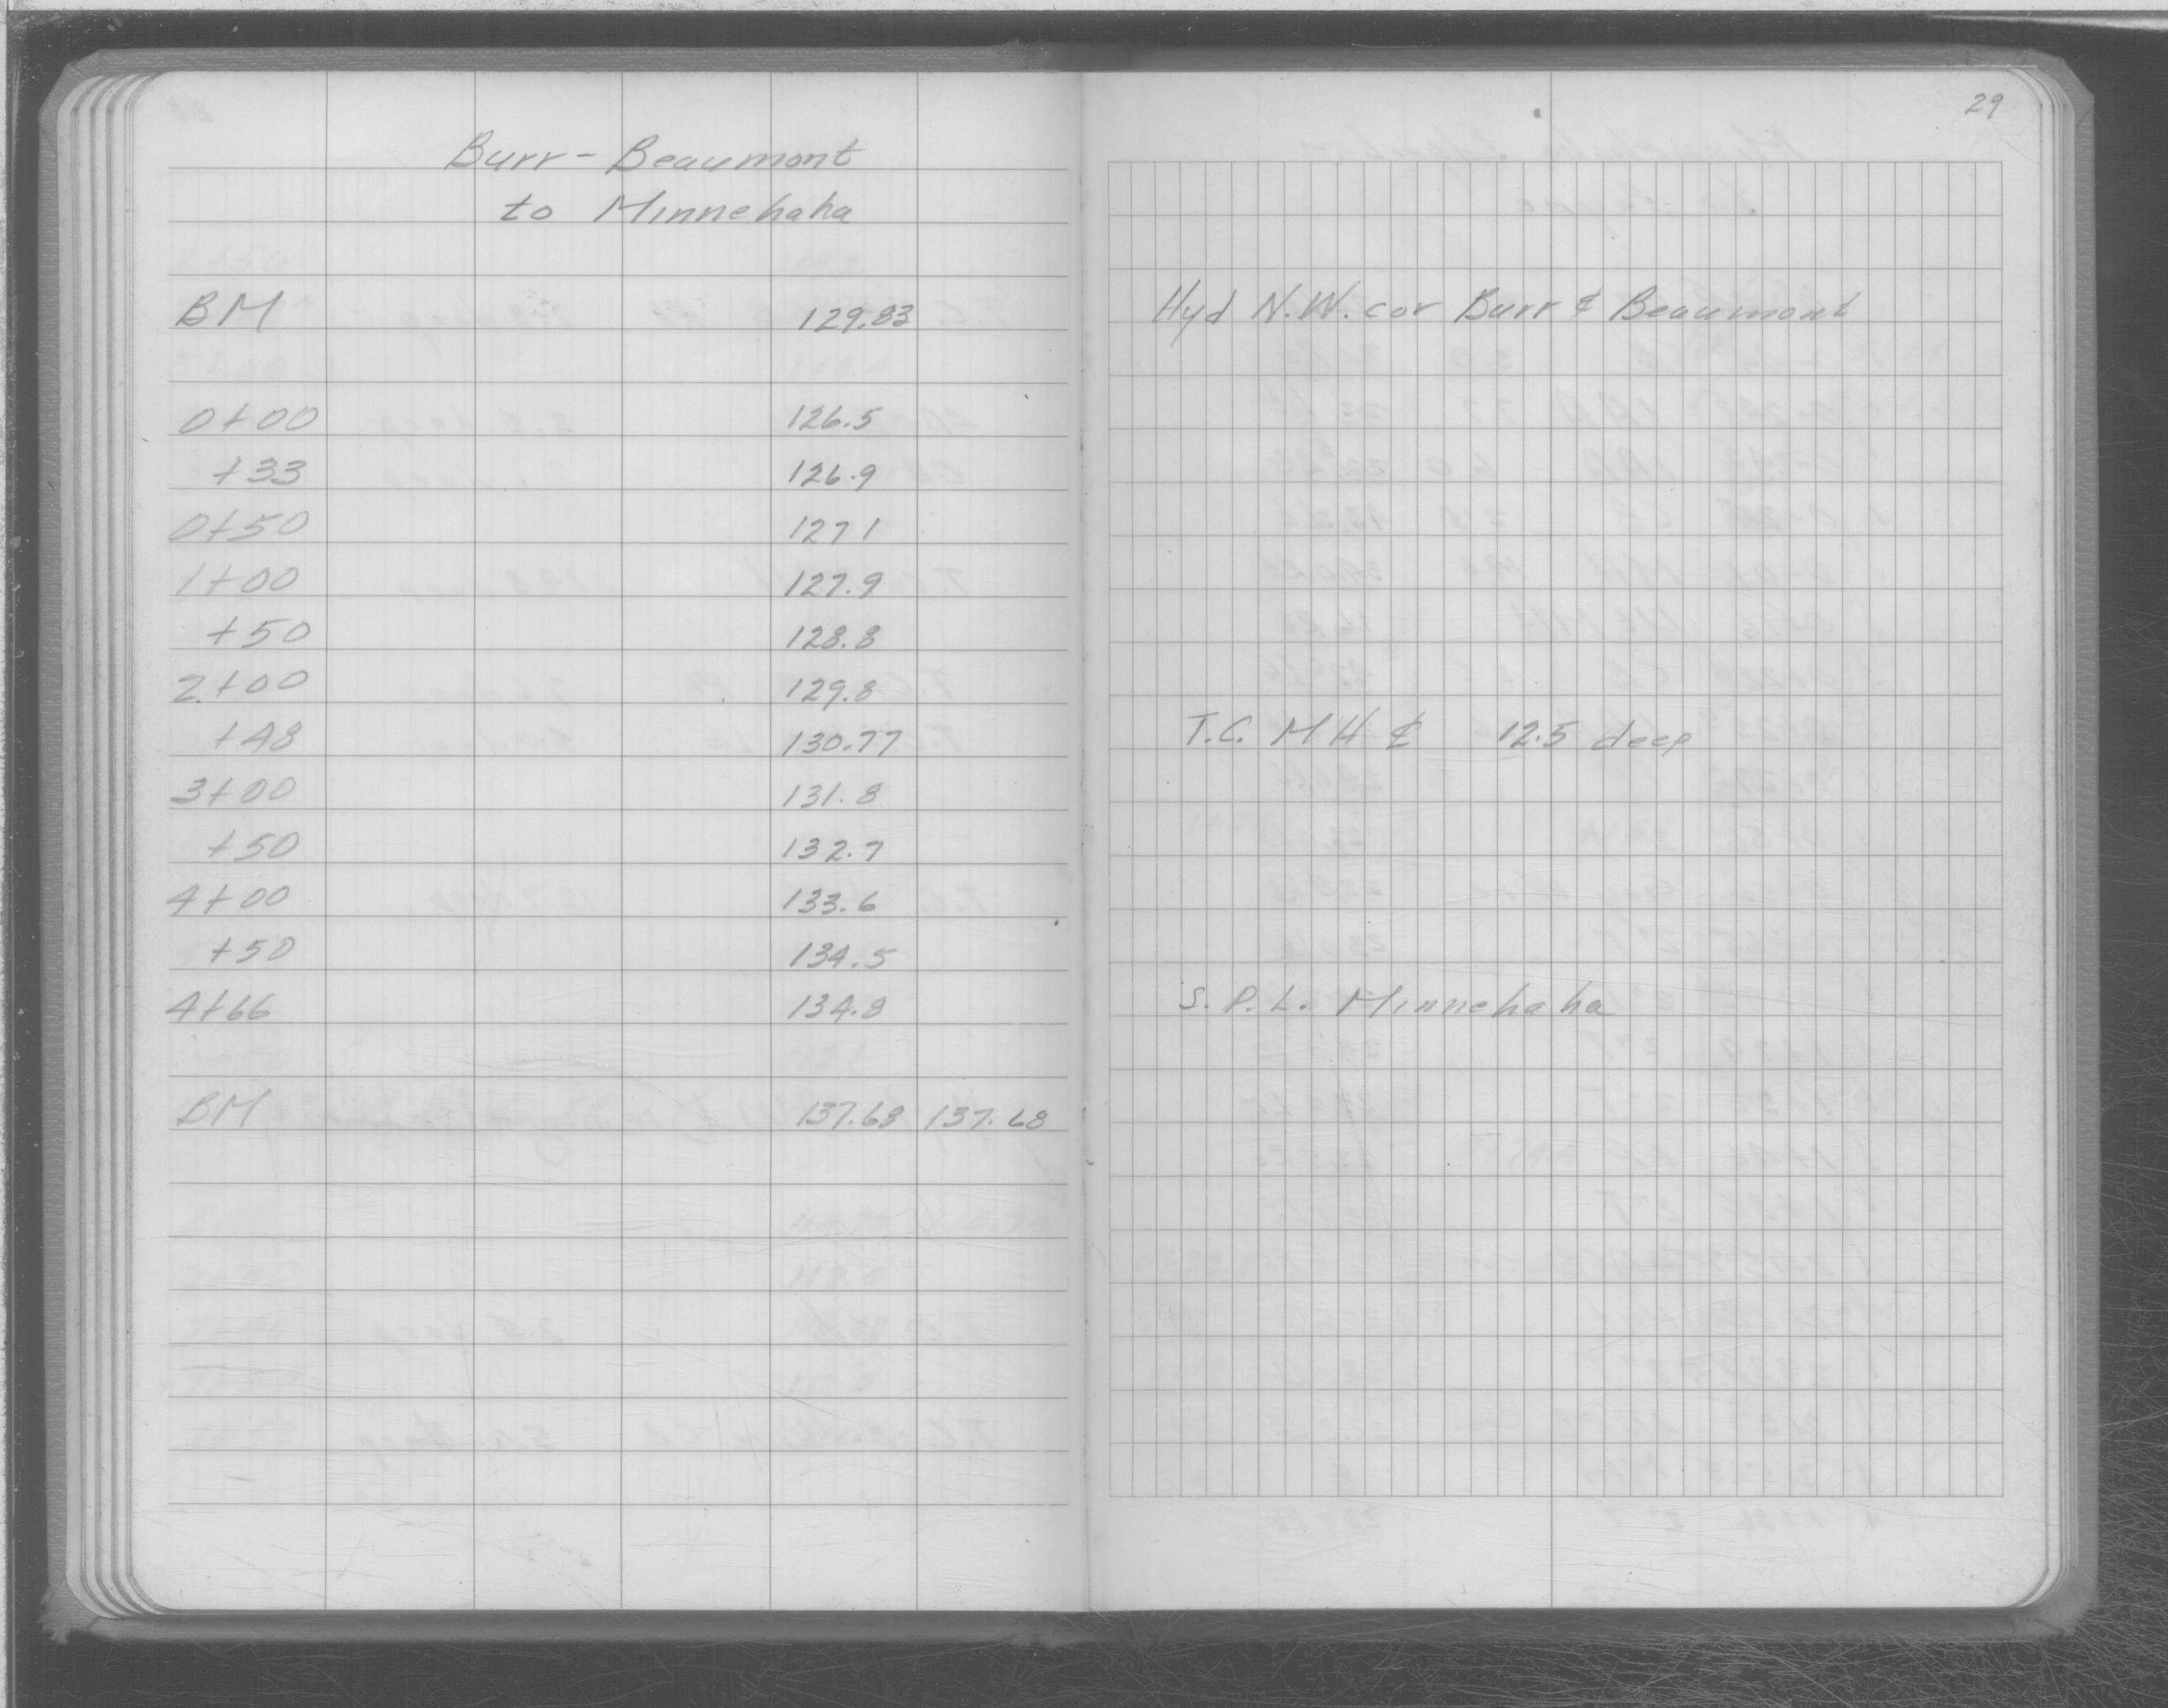 29
Burr - Beaumont
to Minnehaha
BM 129.83 Hyd N.W. cor Burr & Beaumont
0+00 126.5
+33 126.9
0+50 127 1
1+00 127.9
+50 128.8
2+00 129.8
+48 130.77 T.C. M H ℄ 12.5 deep
3+00 131.8
+50 132.7
4+00 133.6
+50 134.5
4+66 134.8 S. P. L. Minnehaha
BM 137.68 137.68